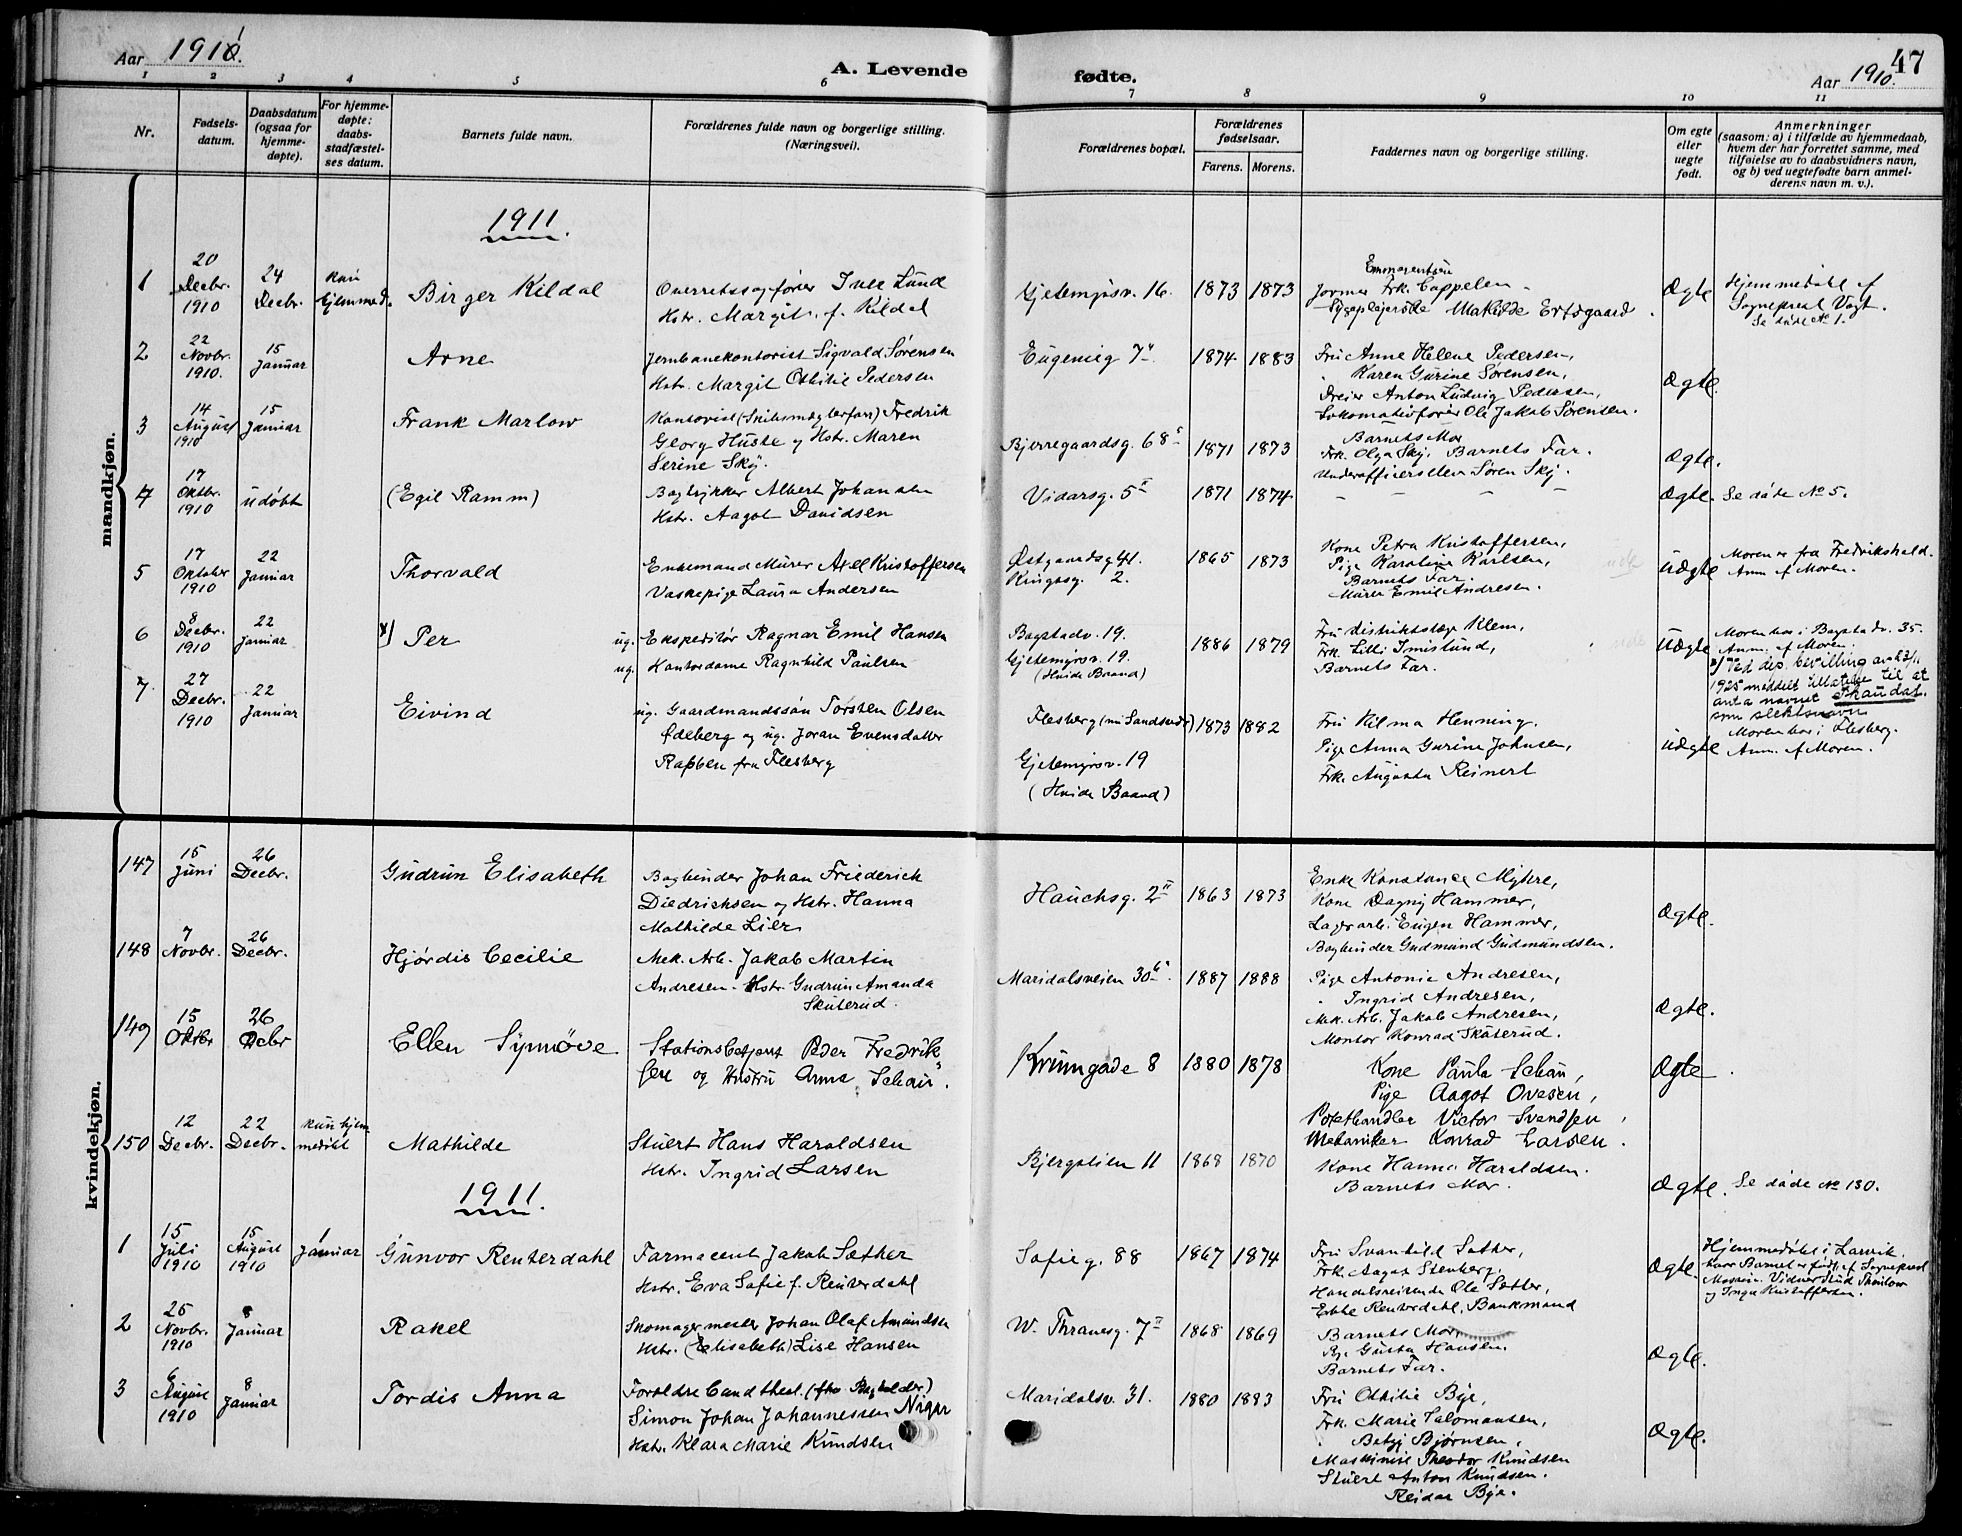 Aar 1911.
A. Levende fødte.
Aar 1910.
47
1 2 3 4 5 6 7 8 9 10 11
Nr.
Fødsels-
datum.
Daabsdatum
(ogsaa for
hjemme-
døpte).
For hjemme-
døpte:
daabs-
stadfæstel-
ses datum.
Barnets fulde navn.
Forældrenes fulde navn og borgerlige stilling.
(Næringsvei).
Forældrenes bopæl.
Forældrenes
fødselsaar.
Farens. Morens.
Faddernes navn og borgerlige stilling.
Om egte
eller
uegte
født.
Anmerkninger
(saasom: a) i tilfælde av hjemmedaab,
hvem der har forrettet samme, med
tilføielse av to daabsvidners navn,
og b) ved uegtefødte barn anmel-
derens navn m. v.).
mandkjøn.
1911
1
20
Decbr.
1910
24
Decbr.
kun
hjemmed.
Birger Kildal
Overretssagfører Iver Lund
Hstr. Margit f. Kildal
Gjetemyrsv. 16.
1873 1873
Jormor Frk. Cappelen
Sygeplejerske Mathilde Ertsgaard.
Ægte
Hjemmedøbt af
Sogneprest Vogt.
Se døde No 1.
2
22
Novbr.
1910.
15
Januar
Arne
Jernbanekontorist Sigvald Sørensen
Hstr. Margit Othilie Pedersen
Eugenieg 7
1874 1883
Fru Anne Helene Pedersen,
Karen Gurine Sørensen,
Dreier Anton Ludvig Pedersen,
Lokomotivfører Ole Jakob Sørensen.
Ægte.
3
14
August
1910
15
Januar
Frank Marlow
Kontorist (Skibsmæglerforr) Fredrik
Georg Huste og Hstr. Maren
Serine Sky.
Bjerregaardsg. 68
1871 1873
Barnets Mor
Frk. Olga Sky. Barnets Far.
Underofficerselev Søren Sky.
Ægte.
4
17
Oktbr.
1910
udøbt
(Egil Ramm)
Bogtrykker Albert Johansen
Hstr. Aagot Davidsen
Vidarsg. 5 II
1871 1874
- - - -
Ægte.
Se døde No 5.
5
17
Oktober
1910
22
Januar
Thorvald
Enkemand Murer Axel Kristoffersen
Vaskepige Laura Andersen
Østgaardsg 41.
Kingosg. 2.
1865 1873
Kone Petra Kristoffersen,
Pige Karoline Karlsen,
Barnets Far.
Murer Emil Andresen.
uægte
Moren er fra Fredrikshald.
Anm. af Moren.
6
8
Decbr.
1910
22
Januar
x) Per
ug. Ekspeditør Ragnar Emil Hansen
ug. Kontordame Ragnhild Paulsen
Bogstadv. 19.
Gjetemyrsv. 19.
(Hvide Baand)
1886 1879
Fru distriktslæge Klem,
Frk. Lilli Imislund,
Barnets Far.
uægte
Moren bor i Bogstadv. 35.
Anm. af Moren.
x) Ved dep. bevilling av
1925 meddelt tillatelse til at
anta navnet Skaudal
som slektsnavn
7
27
Decbr.
1910
22
Januar
Eivind
ug. Gaardmandssøn Torsten Olsen
Ødeberg og ug. Joran Evensdatter
Rabben fra Flesberg
Flesberg (nu Sandsvær)
Gjetemyrsv. 19
(Hvide Baand)
1873 1882
Fru Hilma Henning.
Pige Anna Gurine Johnsen,
Frk. Augusta Reinert
uægte
Moren bor i Flesberg.
Anm. af Moren.
kvindekjøn.
147
15
Juni
26
Decbr.
Gudrun Elisabeth
Bogbinder Johan Friederich
Diedrichsen og Hstr. Hanna
Mathilde Lier
Hauchsg. 2 II
1863 1873
Enke Konstance Myhre,
Kone Dagny Hammer,
Lagerarb. Eugen Hammer,
Bogbinder Gudmund Gudmundsen.
Ægte.
148
7
Novbr.
26
Decbr.
Hjørdis Cecilie
Mek. Arb. Jakob Martin
Andresen. Hstr Gudrun Amanda
Skuterud.
Maridalsveien 30
1887 1888
Pige Antonie Andresen,
Ingrid Andresen,
Mek. Arb. Jakob Andresen,
Montør Konrad Skuterud.
Ægte.
149
15
Oktbr
26
Decbr
Ellen Synnøve
Stationsbetjent Peder Fredrik
og Hustru Anna Schau.
Krumgade 8
1880 1878
Kone Paula Schau,
Pige Aagot Ovesen,
Potethandler Victor Svendsen,
Mekaniker Konrad Larsen.
Ægte
150
12
Decbr.
22
Decbr.
kun hjem-
medøbt
Mathilde
Stuert Hans Haraldsen
Hstr. Ingrid Larsen
Bjergstien 11
1868 1870
Kone Hanna Haraldsen.
Barnets Mor.
Ægte.
Se døde No 130.
1911.
1
15
Juli
1910
15
August
1910
1
Januar
Gunvor Renterdahl
Farmaceut Jakob Sæther
Hstr. Eva Sofie f. Renterdahl
Sofieg. 88
1867 1874
Fru Svanhild Sæther,
Frk. Aagot Stenberg,
Handelsreisende Ole Sæther,
Ebbe Renterdahl, Bankmand
Ægte.
Hjemmedøbt i Larvik.
hvor Barnet er født, af Sogneprest
Vidner Stud Thaulow
og Inga Kristoffersen.
2
25
Novbr.
1910
8
Januar
Rakel
Skomagermester Johan Olaf Amundsen
Hstr. (Elisabeth) Lise Hansen
W. Thranesg. 7 II
1868 1869
Barnets Mor,
Pg. Gusta Hansen.
Barnets Far.
Ægte.
3
6
August
1910
8
Januar
Tordis Anna
Foreldre Cand theol. (fhv Bogholder)
Simon Johan Johannessen Niger
Hstr. Klara Marie Knudsen
Maridalsv. 31.
1880 1883
Fru Othilie Bye,
Frk. Marie Salomonsen,
Betzy Bjørnsen,
Maskinist Theodor Knudsen
Stuert Anton Knudsen.
Reidar Bye.
Ægte.